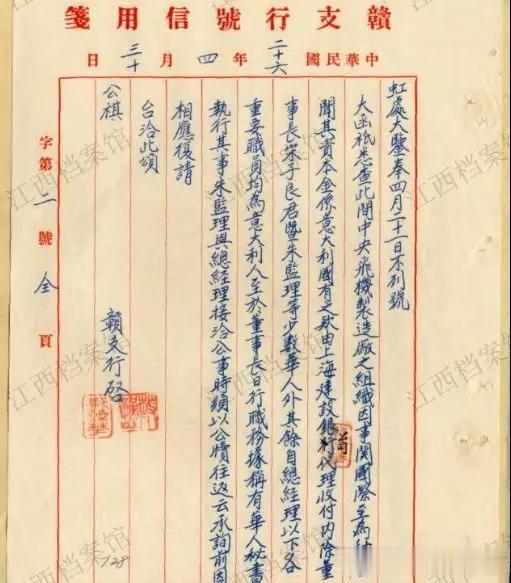 贛支行號信用箋
中華民國二十六年四月三十日
虹處大鑒奉四月二十一日不列號
大函祇悉查此間中央飛機製造廠之組織因事關國際至為秘
聞其資本金係意大利國有之欵由上海建設銀公司代理收付內除董
事長宋子良君暨朱監理等少數華人外其餘自總經理以下各
重要職員均為意大利人至於董事長日行職務據稱有華人秘書
執行其事朱監理與總經理接洽公事時須以公牘往返云承詢前因
相應復請
台洽此頌
公祺
贛支行啟
字第二號全頁
728
江西档案馆